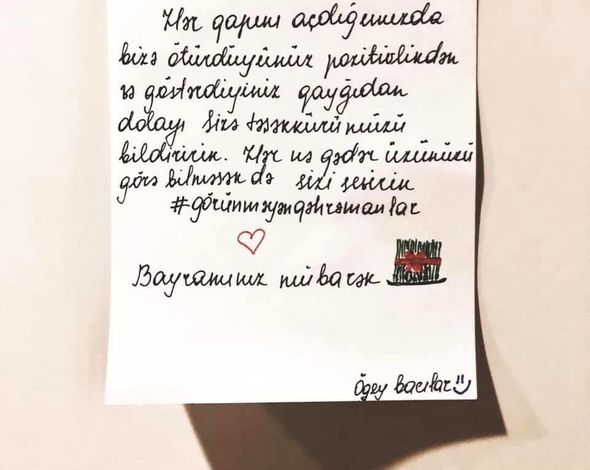 Hər qapını açdığımızda
bizə ötürdüyünüz pozitivlikdən
və göstərdiyiniz qayğıdan
dolayı sizə təşəkkürümüzü
bildiririk. Hər nə qədər üzünüzü
görə bilməsək də sizi sevirik
#görünməyənqəhrəmanlar
Bayramınız mübarək
Ögey bacılar